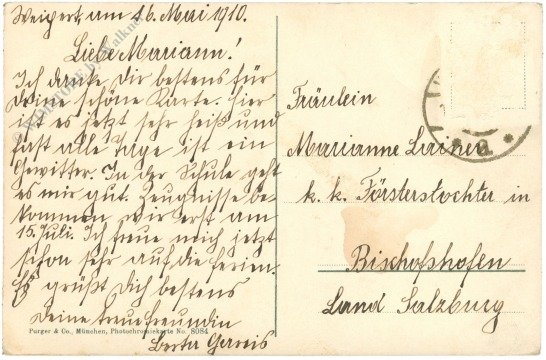 Weipert, am 16. Mai 1910.
Liebe Mariann!
Ich danke Dir bestens für
Deine schöne Karte. Hier
ist es jetzt sehr heiß und
fast alle Tage ist ein
Gewitter. In der Schule geht
es mir gut. Zeugnisse be-
kommen wir erst am
15. Juli. Ich freue mich jetzt
schon sehr auf die Ferien.
Es grüßt Dich bestens
Deine treue Freundin
Berta Gerreis
Purger & Co., München, Photochromiekarte No. 8084
Fräulein
Marianne Lainer
k. k. Försterstochter in
Bischofshofen
Land Salzburg